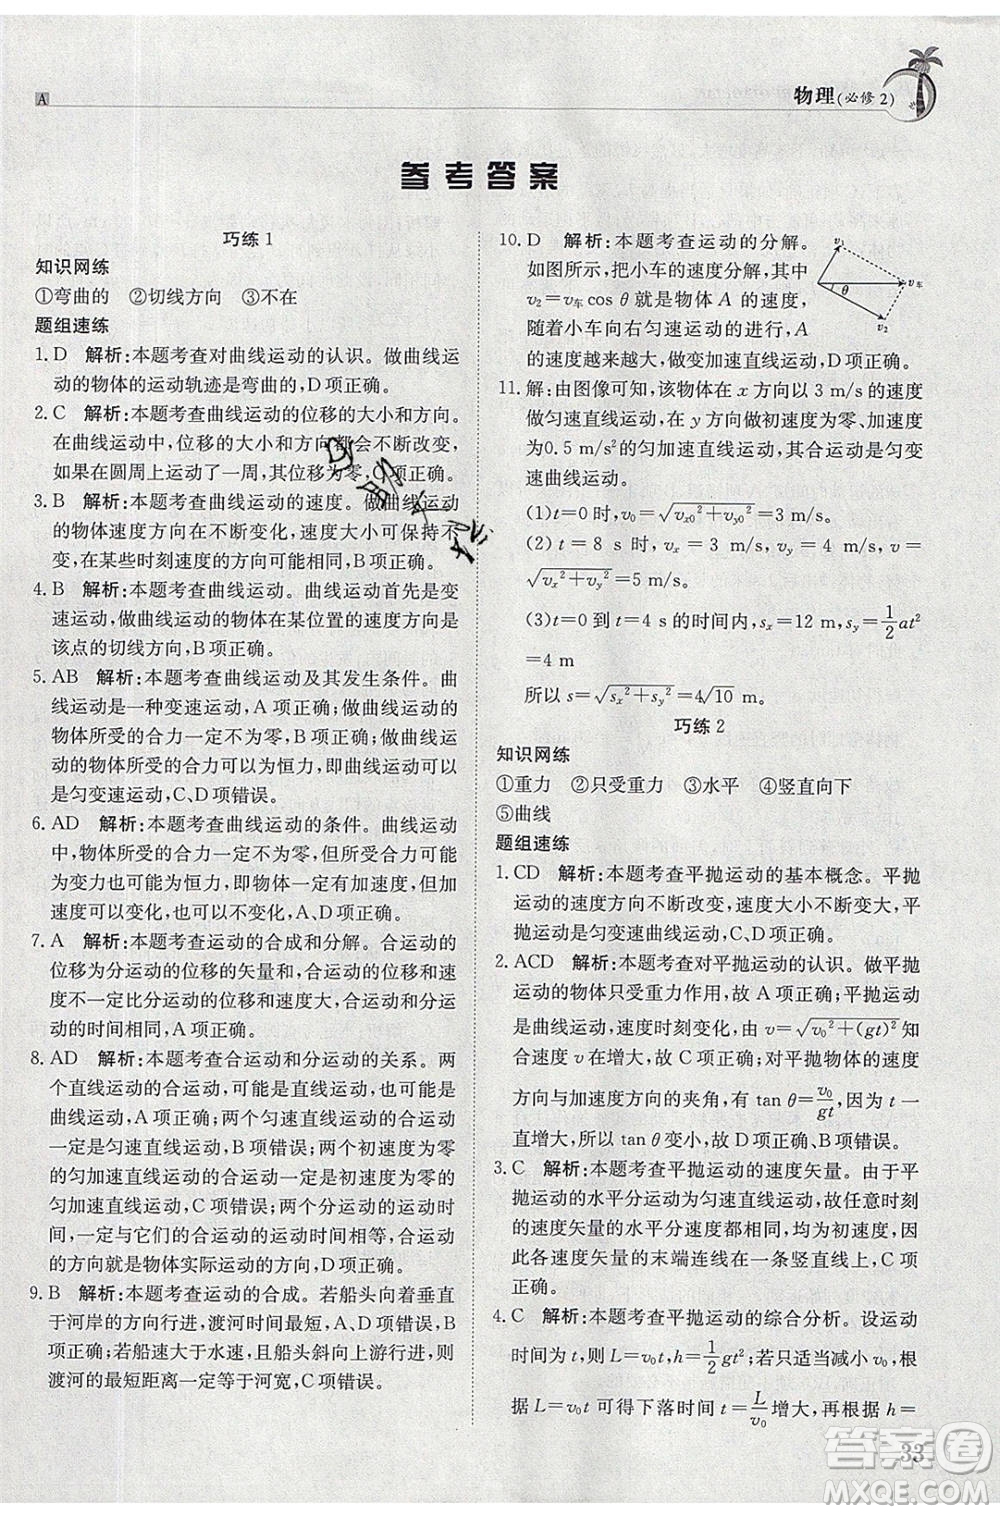 A
物理(必修2)
参考答案
巧练1
知识网练
①弯曲的 ②切线方向 ③不在
题组速练
1. D 解析:本题考查对曲线运动的认识。做曲线运
动的物体的运动轨迹是弯曲的,D项正确。
2. C 解析:本题考查曲线运动的位移的大小和方向。
在曲线运动中,位移的大小和方向都会不断改变,
如果在圆周上运动了一周,其位移为零,C项正确。
3. B 解析:本题考查曲线运动的速度。做曲线运动
的物体速度方向在不断变化,速度大小可保持不
变,在某些时刻速度的方向可能相同,B项正确。
4. B 解析:本题考查曲线运动。曲线运动首先是变
速运动,做曲线运动的物体在某位置的速度方向是
该点的切线方向,B项正确。
5. AB 解析:本题考查曲线运动及其发生条件。曲
线运动是一种变速运动,做曲线运动的
物体所受的合力一定不会为零,A、B项正确;如果
物体所受的合力为恒力,即曲线运动也可能
是匀变速运动,C、D项错误。
6. AD 解析:本题考查曲线运动的条件。曲线运动
中,物体所受的合力一定不为零,物体所受的合力
可能为变力,也可能为恒力,即物体一定有加速度,但加
速度可以变化,也可以不变化,A、D项正确。
7. A 解析:本题考查运动的合成和分解。合运动的
位移为分运动的位移的矢量和,合运动的位移和速
度不一定比分运动的位移和速度大,合运动和分运
动的时间相同,A项正确。
8. AD 解析:本题考查合运动和分运动的关系。两
个直线运动的合运动,可能是直线运动,也可能是
曲线运动,A项正确;两个匀速直线运动的合运动
一定是匀速直线运动,B项错误;两个初速度为零
的匀加速直线运动的合运动一定是初速度为零的
匀加速直线运动,C项错误;合运动的速度、位移、
时间,一定与它们的合运动的时间相等,合运动
的方向就是物体实际运动的方向,D项正确。
9. B 解析:本题考查运动的合成。若船头向着垂直
于河岸的方向行进,渡河时间最短,A、D项错误,B项
正确;若船速大于水速,且船头斜向上游行进,则
渡河的最短距离一定等于河宽,C项错误。
10. D 解析:本题考查运动的分解。
如图所示,把小车的速度分解,
v₂=v车cos θ就是物体 A 的速度,
随着小车向右匀速运动的进行,A
的速度越来越大,做变加速直线运动,D项正确。
v₁
θ
v车
v₂
11. 解:由图像可知,该物体在 x 方向以 3 m/s 的速度
做匀速直线运动,在 y 方向做初速度为零、加速度
为0.5 m/s²的匀加速直线运动,其合运动是匀变
速曲线运动。
(1)t=0 时,v₀=√(vₓ₀²+v_y0²)=3 m/s。
(2) t = 8 s 时,vₓ = 3 m/s, v_y = 4 m/s, v =
√(vₓ²+v_y²)=5 m/s。
(3)t=0 到 t=4 s 的时间内,sₓ=12 m,s_y=1/2 at²
=4 m
所以 s=√(sₓ²+s_y²)=4√10 m。
巧练2
知识网练
①重力 ②只受重力 ③水平 ④竖直向下
⑤曲线
题组速练
1. CD 解析:本题考查平抛运动的基本概念。平抛
运动的速度方向不断改变,速度不断变大,平
抛运动是匀变速曲线运动,C、D项正确。
2. ACD 解析:本题考查对平抛运动的认识。做平抛
运动的物体只受重力作用,故 A 项正确;平抛运动
是曲线运动,速度时刻变化,由 v=√(v₀²+(gt)²)知
合速度 v 在增大,故 C 项正确;对平抛物体的速度
方向与加速度方向的夹角,有 tan θ=v₀/gt,因为 t 一
直增大,所以 tan θ 变小,故 D 项正确,B 项错误。
3. C 解析:本题考查平抛运动的速度矢量。由于平
抛运动的水平分运动为匀速直线运动,故任意时刻
的速度矢量的水平分速度都相同,均为初速度,
因此各速度矢量的末端连线在一条竖直线上,C 项
正确。
4. C 解析:本题考查平抛运动的综合分析。设运动
时间为 t,则 L=v₀t,h=1/2 gt²;若只适当减小 v₀,根
据 L=v₀t 可得下落时间 t=L/v₀ 增大,再根据 h=
33
答案圈
MXQE.COM